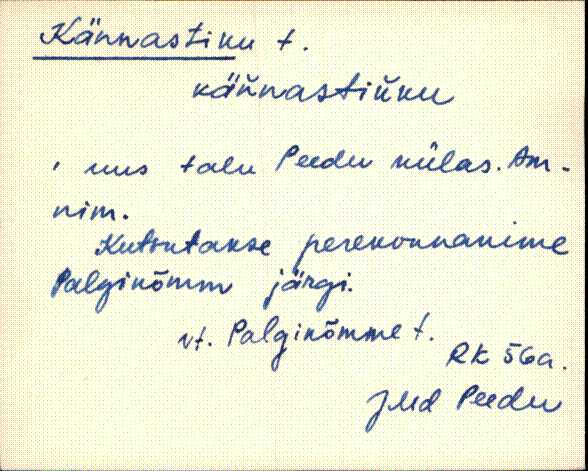 Kännastiku t.
käǹnastiǹku
, uus talu Peedu külas. Am-
nim.
Kutsutakse perekonnanime
Palginõmm järgi.
vt. Palginõmme t.
RK 56a.
JMd Peedu